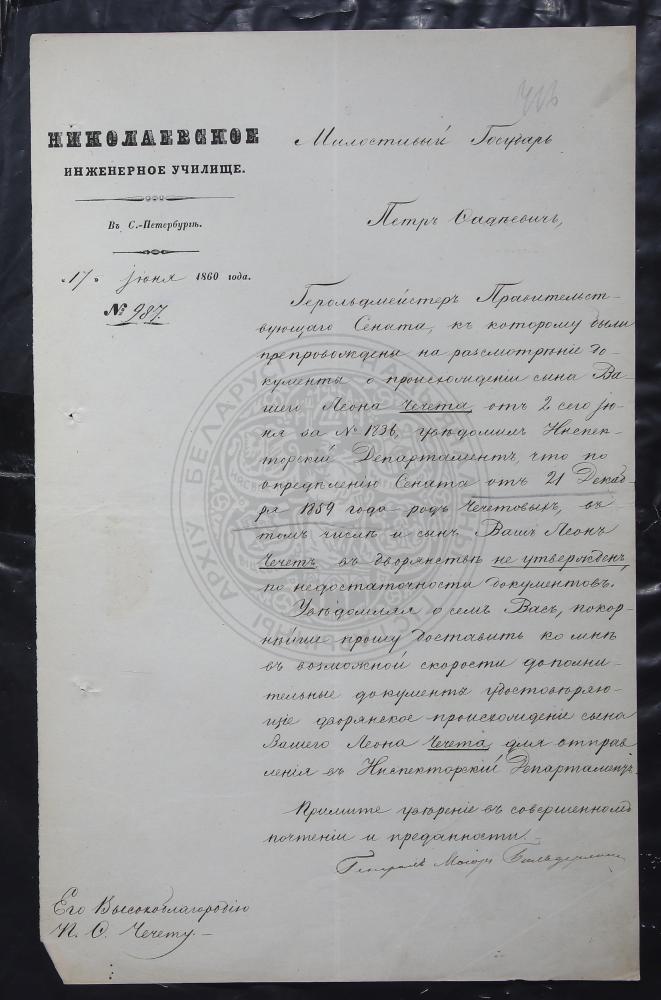 НИКОЛАЕВСКОЕ
ИНЖЕНЕРНОЕ УЧИЛИЩЕ.
Въ С.-Петербургѣ.
«17» Іюня 1860 года.
№ 987.
Милостивый Государь
Петръ Фадѣевичъ,
Герольдмейстеръ Правительст-
вующаго Сената, къ которому были
препровождены на разсмотрѣніе до-
кументы о происхожденіи сына Ва-
шего Леона Чечета, отъ 2 сего Iю-
ня за № 1836, увѣдомилъ Инспек-
торскій Департаментъ, что по
опредѣленію Сената отъ 21 Декаб-
ря 1859 года родъ Чечетовыхъ, въ
томъ числѣ и сынъ Вашъ Леонъ
Чечетъ въ дворянствѣ не утвержденъ,
по недостаточности документовъ.
Увѣдомляя о семъ Васъ, покор-
нѣйше прошу, доставить ко мнѣ
въ возможной скорости дополни-
тельные документы удостовѣряю-
щіе дворянское происхожденіе сына
Вашего Леона Чечета, для отправ-
ленія въ Инспекторскій Департаментъ.
Примите увѣреніе въ совершенномъ
почтеніи и преданности.
Генералъ Маіоръ
Его Высокоблагородію
П. Ф. Чечету.
АРХІЎ БЕЛАРУСІ